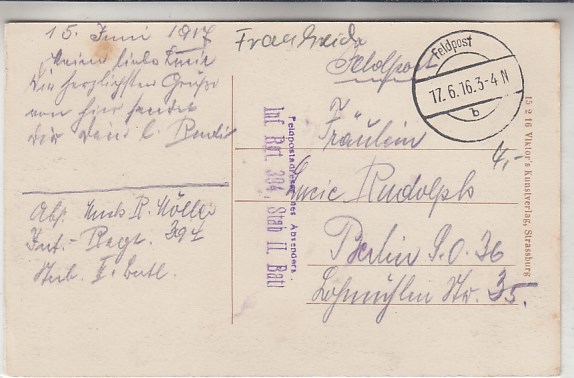 15. Juni 1917
Meine liebe Lucie
Die herzlichsten Grüße
von hier sendet
Dir Dein l. Rudi
Abs. R. Möller
Inf.-Regt. 394
Stab. II. Batl.
Feldpost
Feldpost
17.6.16.3-4 N
b
Feldpostadresse des Absenders:
Inf Rgt 394, Stab II. Batl
Fräulein
Lucie Rudolph
Berlin S.O. 36
Lohmühlen Str. 35.
4,-
15 2 16 Viktor's Kunstverlag, Strassburg